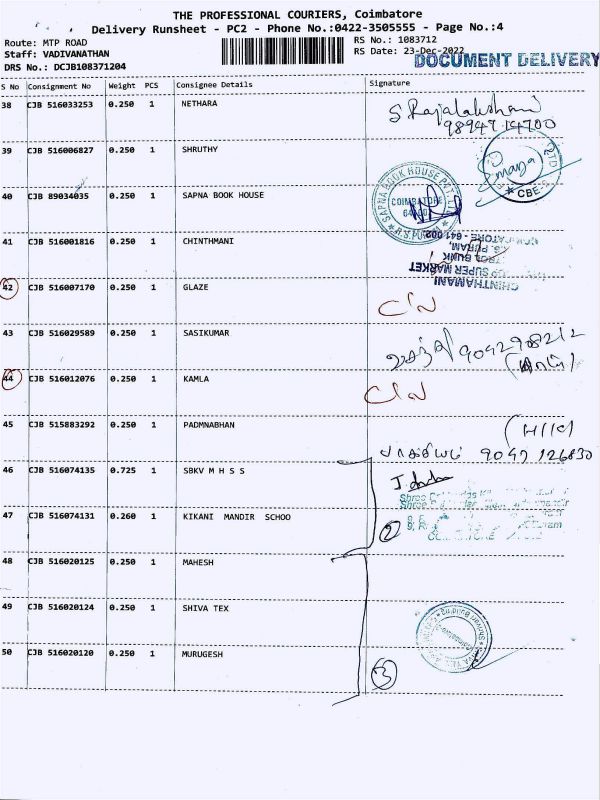 THE PROFESSIONAL COURIERS, Coimbatore
Delivery Runsheet - PC2 - Phone No.:0422-3505555 - Page No.:4
Route: MTP ROAD
Staff: VADIVANATHAN
DRS No.: DCJB108371204
RS No.: 1083712
RS Date: 23-Dec-2022
DOCUMENT DELIVERY
S No Consignment No Weight PCS Consignee Details Signature
38 CJB 516033253 0.250 1 NETHARA
S Rajalakshmi
9894714700
39 CJB 516006827 0.250 1 SHRUTHY
CBE
40 CJB 89034035 0.250 1 SAPNA BOOK HOUSE
SAPNA BOOK HOUSE PVT LTD
COIMBATORE
R.S.PURAM
41 CJB 516001816 0.250 1 CHINTHMANI
CHINTHAMANI
SUPER MARKET
PURAM,
- 641 002
42 CJB 516007170 0.250 1 GLAZE
43 CJB 516029589 0.250 1 SASIKUMAR
9042908212
44 CJB 516012076 0.250 1 KAMLA
45 CJB 515883292 0.250 1 PADMNABHAN
9047126830
46 CJB 516074135 0.725 1 SBKV M H S S
Shree
Shree
47 CJB 516074131 0.260 1 KIKANI MANDIR SCHOO
2
48 CJB 516020125 0.250 1 MAHESH
49 CJB 516020124 0.250 1 SHIVA TEX
50 CJB 516020120 0.250 1 MURUGESH
3